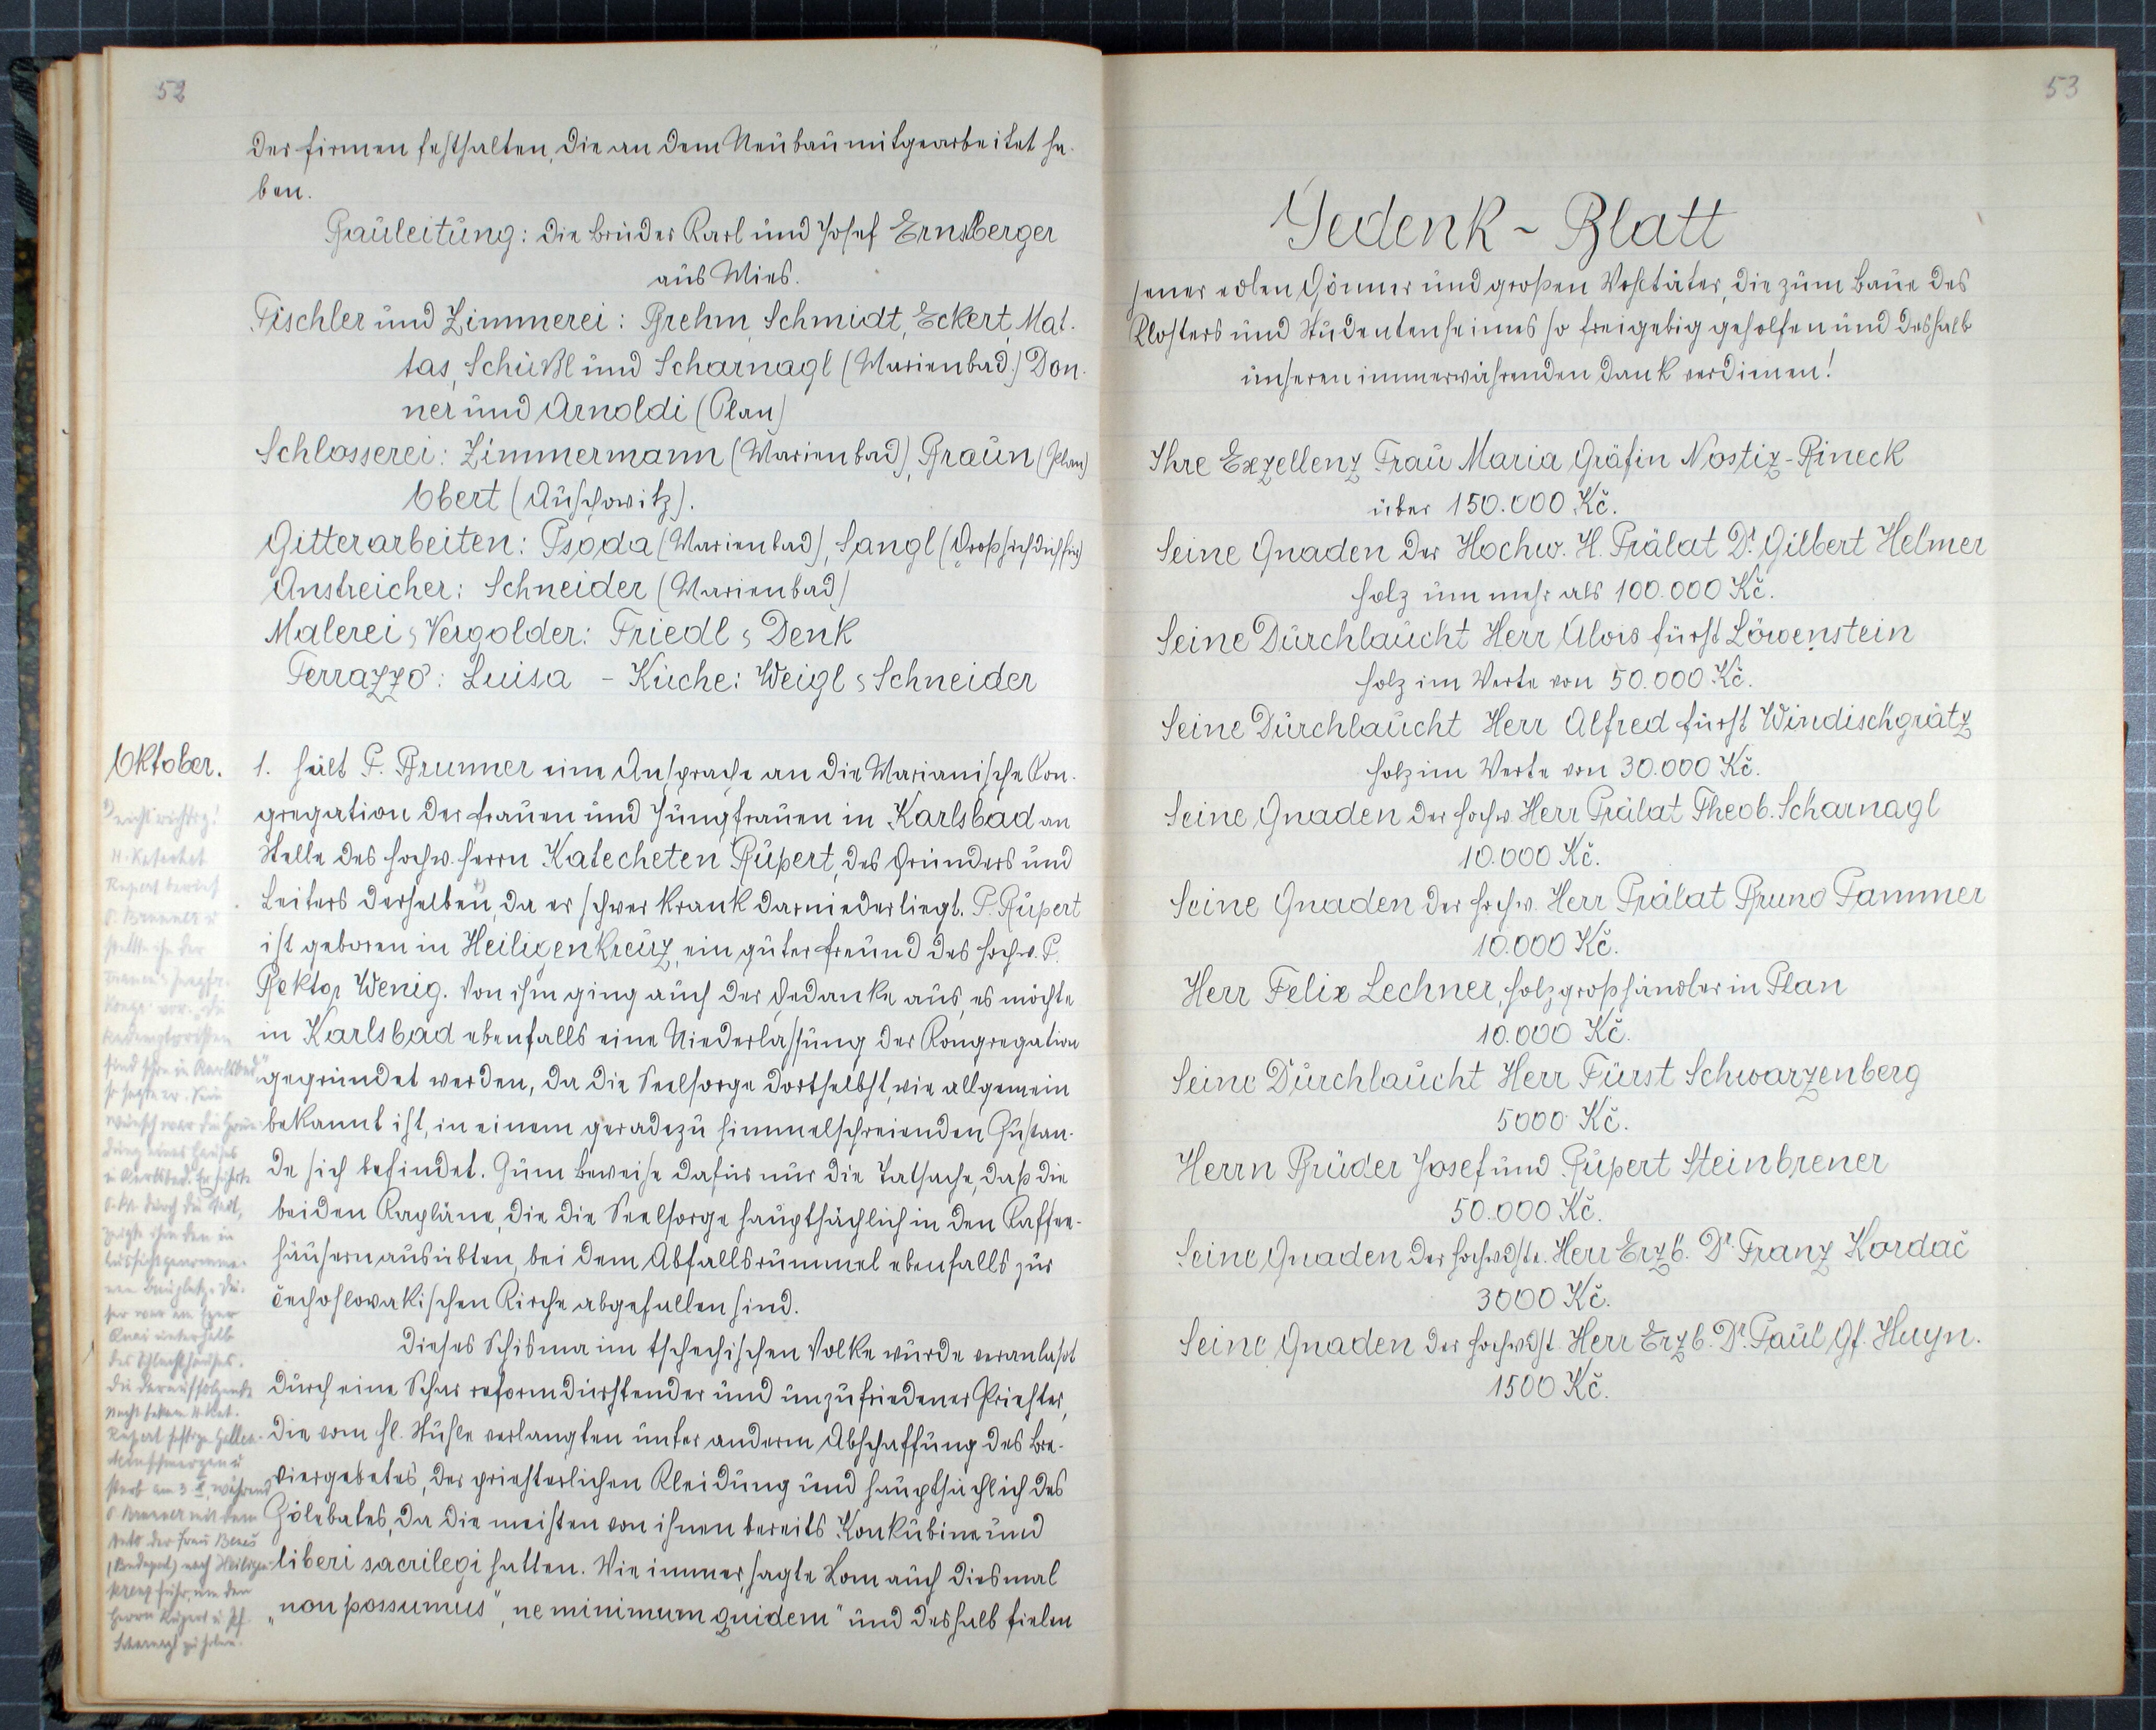 52
der Firmen festhalten, die an dem Neubau mitgearbeitet ha-
ben.
Bauleitung: die Brüder Karl und Josef Ernstberger
aus Mies.
Tischler und Zimmerei: Brehm, Schmidt, Eckert, Mat-
tas, Schüßl und Scharnagl (Marienbad) Don-
ner und Arnoldi (Plan)
Schlosserei: Zimmermann (Marienbad), Braun (Plan)
Obert (Auschowitz).
Gitterarbeiten: Psoda (Marienbad), Sangl (Großsichdichfür)
Anstreicher: Schneider (Marienbad)
Malerei, Vergolder: Friedl, Denk
Terrazzo: Luisa - Küche: Weigl, Schneider
Oktober. 1. hält P. Brunner eine Ansprache an die Marianische Kon-
gregation der Frauen und Jungfrauen in Karlsbad an
Stelle des hochw. Herrn Katecheten Rupert, des Gründers und
Leiters derselben +), da er schwer krank darniederliegt. P. Rupert
ist geboren in Heiligenkreuz, ein guter Freund des hochw. P.
Rektor Wenig. Von ihm ging auch der Gedanke aus, es möchte
in Karlsbad ebenfalls eine Niederlassung der Kongregation
gegründet werden, da die Seelsorge dortselbst, wie allgemein
bekannt ist, in einem geradezu himmelschreienden Zustan-
de sich befindet. Zum Beweise dafür nur die Tatsache, daß die
beiden Kapläne, die die Seelsorge hauptsächlich in den Kaffee-
häusern ausübten, bei dem Abfallsrummel ebenfalls zur
čechoslovakischen Kirche abgefallen sind.
Dieses Schisma im tschechischen Volke wurde veranlaßt
durch eine Schar reformdürstender und unzufriedener Priester,
die vom hl. Stuhle verlangten unter anderm Abschaffung des Bre-
viergebetes, der priesterlichen Kleidung und hauptsächlich des
Zölebates, da die meisten von ihnen bereits Konkubine und
liberi sacrilegi hatten. Wie immer, sagte Rom auch diesmal
„non possumus", ne minimum quidem" und deshalb fielen
nicht richtig!
H. Katechet
Rupert berief
P. Brunner u
stellte ihn der
Frauen u Jungfr.
Kongr. vor. „Die
Redemptoristen
sind schon in Karlsbad"
so sagte er. Sein
Wunsch war die Grün-
dung eines Hauses
in Karlsbad. Er führte
durch die Stadt,
zeigte ihm den in
Aussicht genomme-
nen Bauplatz. Die-
ser war am Eger
Quai unterhalb
des Schlachthauses.
Die darauffolgende
Nacht bekam H. Kat.
Rupert heftige Gallen-
steinschmerzen u
starb am 3. X., während
P. Brunner mit dem
Auto der Frau
(Budapest) nach Heiligen-
kreuz fuhr, um den
Herrn Rupert u
zu holen.
53
Gedenk - Blatt
jener edlen Gönner und großen Wohltäter, die zum Baue des
Klosters und Studentenheimes so freigebig geholfen und deshalb
unseren immerwährenden Dank verdienen!
Ihre Exzellenz Frau Maria Gräfin Nostiz-Rineck
über 150.000 Kč.
Seine Gnaden der Hochw. H. Prälat Dr. Gilbert Helmer
Holz um mehr als 100.000 Kč.
Seine Durchlaucht Herr Alois Fürst Löwenstein
Holz im Werte von 50.000 Kč.
Seine Durchlaucht Herr Alfred Fürst Windischgrätz
Holz im Werte von 30.000 Kč.
Seine Gnaden der hochw. Herr Prälat Theob. Scharnagl
10.000 Kč.
Seine Gnaden der hochw. Herr Prälat Bruno Pammer
10.000 Kč.
Herr Felix Lechner, Holzgroßhändler in Plan
10.000 Kč.
Seine Durchlaucht Herr Fürst Schwarzenberg
5000 Kč.
Herrn Brüder Josef und Rupert Steinbrener
50.000 Kč.
Seine Gnaden der hochwdste. Herr Erzb. Dr. Franz Kordač
3000 Kč.
Seine Gnaden der hochwdst. Herr Erzb. Dr. Paul Gf. Huyn.
1500 Kč.